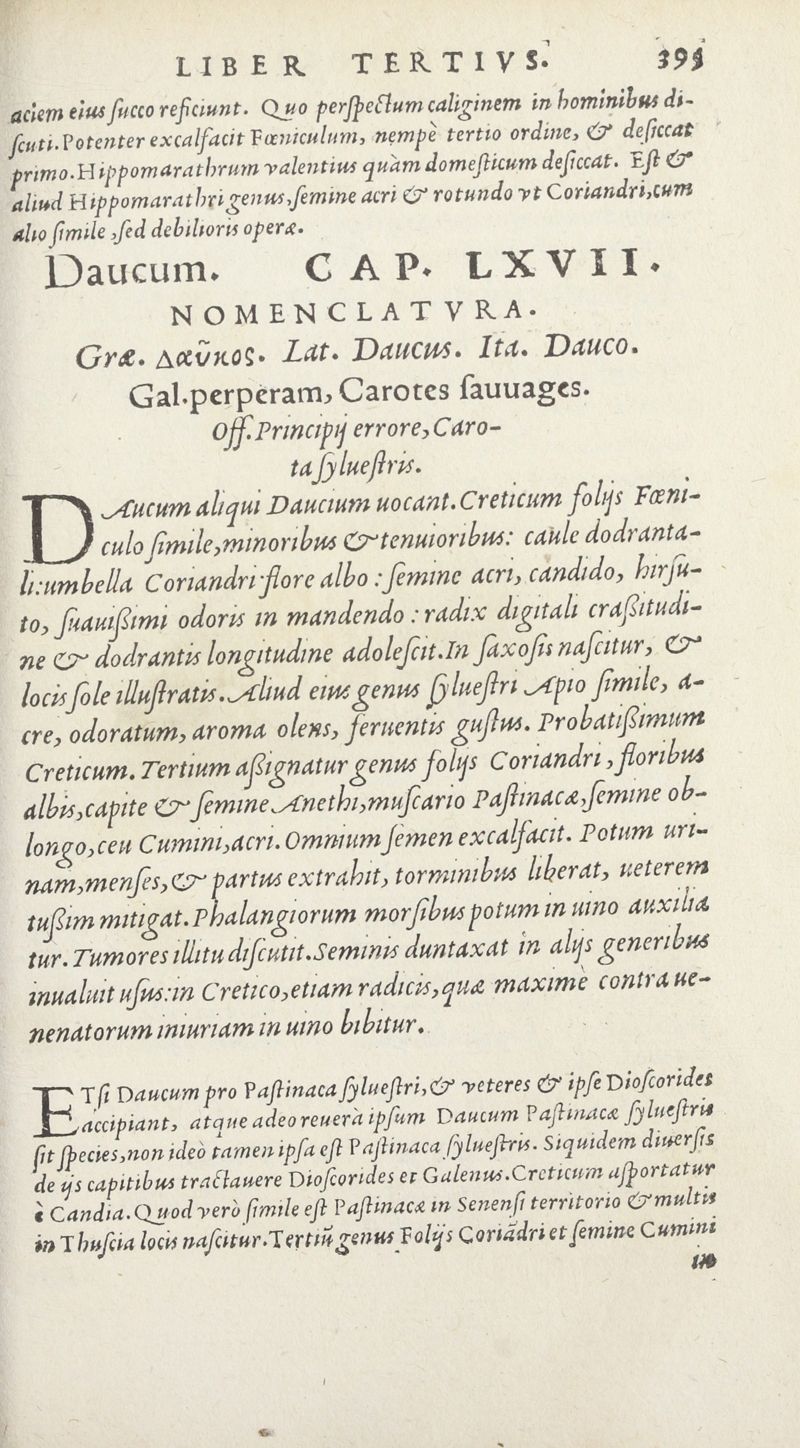 LIBER TERTIVS. 395
aciem eius succo reficiunt. Quo perspectum caliginem in hominibus di-
scuti. Potenter excalfacit Fœniculum, nempè tertio ordine, & desiccat
primo. Hippomarathrum valentius quàm domesticum desiccat. Est &
aliud Hippomarathri genus, semine acri & rotundo vt Coriandri, cum
alio simile, sed debilioris operæ.
Daucum. CAP. LXVII.
NOMENCLATVRA.
Græ. Δαῦκος. Lat. Daucus. Ita. Dauco.
Gal. perperam, Carotes sauuages.
Off. Principij errore, Caro-
ta syluestris.
DAucum aliqui Daucium uocant. Creticum folijs Fœni-
culo simile, minoribus & tenuioribus: caule dodranta-
li: umbella Coriandri flore albo: semine acri, candido, hirsu-
to, suauißimi odoris in mandendo: radix digitali craßitudi-
ne & dodrantis longitudine adolescit. In saxosis nascitur, &
locis sole illustratis. Aliud eius genus syluestri Apio simile, a-
cre, odoratum, aroma olens, feruentis gustus. Probatißimum
Creticum. Tertium aßignatur genus folijs Coriandri, floribus
albis, capite & semine Anethi, muscario Pastinacæ, semine ob-
longo, ceu Cumini, acri. Omnium semen excalfacit. Potum uri-
nam, menses, & partus extrahit, torminibus liberat, ueterem
tußim mitigat. Phalangiorum morsibus potum in uino auxilia
tur. Tumores illitu discutit. Seminis duntaxat in alijs generibus
inualuit usus: in Cretico, etiam radicis, quæ maximè contra ue-
nenatorum iniuriam in uino bibitur.
ETsi Daucum pro Pastinaca syluestri, & veteres & ipse Dioscorides
accipiant, atque adeo reuerà ipsum Daucum Pastinacæ syluestris
sit species, non ideò tamen ipsa est Pastinaca syluestris. Siquidem diuersis
de ijs capitibus tractauere Dioscorides et Galenus. Creticum asportatur
è Candia. Quod verò simile est Pastinacæ in Senensi territorio & multis
in Thuscia locis nascitur. Tertiũ genus Folijs Coriãdri et semine Cumini
in